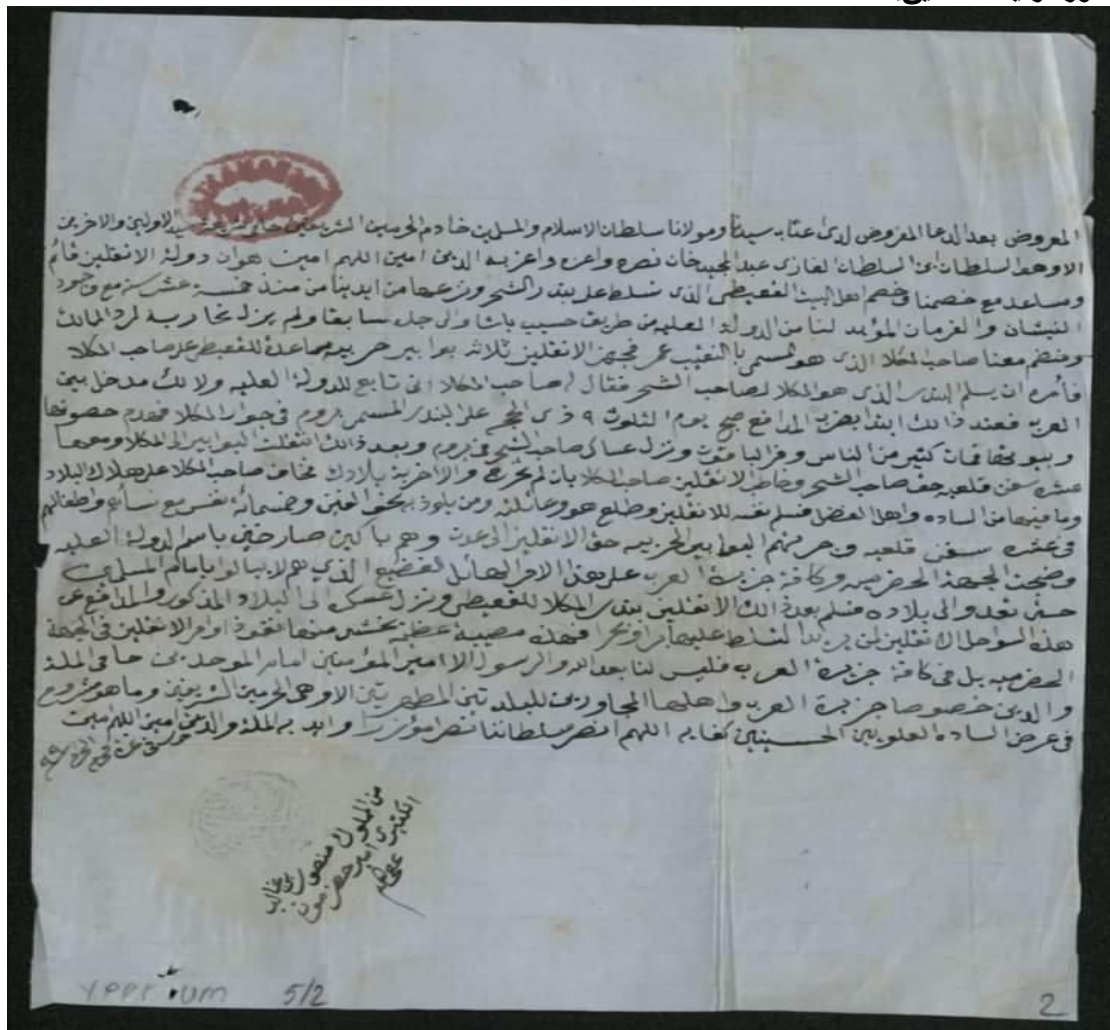 المعروض بعد الدعا المفروض لدى عتابه سيدنا ومولانا سلطان الاسلام والمسلمين خادم الحرمين الشريفين حامي سيد الاولين والاخرين
الاوهو السلطان ابن السلطان الغازى عبد الحميد خان نصره واعزه واعز به الدين امين اللهم امين هو ان دولة الانقليز قائم
ومساعد مع خصمنا وخصم اهل البيت القعيطي الذى تسلط على بندر الشحر ونزعها من ايدينا من منذ خمسة عشر سنه مع وجود
النيشان والفرمان المؤيد لنا من الدولة العليه من طريق حسيب باشا والى جده سابقا ولم يزل نحاربه لرد المالك
وخصم معنا صاحب المكلا الذى هو المسمى بالنقيب عمر فجهز الانقليز ثلاثه بوابير حربيه مساعدة للقعيطي على صاحب المكلا
فأمره ان يسلم البندر الذى هو المكلا لصاحب الشحر فقال له صاحب المكلا انى تابع للدولة العليه ولا لك مدخل بين
العرب فعند ذالك ابتدا بضرب المدافع صبح يوم الثلوث ٩ ذى الحجه على البندر المسمى بروم فى جوار المكلا فهدم حصونها
وبيوتها قات كثير من الناس ونزل عساكر صاحب الشحر فى بروم وبعد ذالك انتقلت البوابير الى المكلا ومعها
عشره سفن قلعيه حق صاحب الشحر وخاطب الانقليز صاحب المكلا بان لم تخرج والا اخربة بلادك فخاف صاحب المكلا على هلاك البلاد
وما فيها من الساده واهل الفضل فسلم نفسه للانقليز وطلع هو وعائلته ومن يلوذ به نحو الفين وخسمائه نفس مع نسائهم واطفالهم
فى عشره سفن قلعيه وجرتهم البوابير الحربيه حق الانقليز الى عدن وهم باكين صارخين باسم الدولة العليه
وضجت الجهة الحضرميه وكافة جزيرة العرب على هذا الامر الهائل الفضيع الذي هم لا يبالوا بامام المسلمين
حين تعدوا الى بلاده فسلم بعد ذالك الانقليز بندر المكلا للقعيطي ونزل عسكره الى البلاد المذكور والمدافع عن
هذه السواحل الانقليز لمن يريد التسلط عليها برا وبحرا فهذه مصيبة عظيمه نخشى منها نفوذ اوامر الانقليز فى الجهة
الحضرميه بل فى كافة جزيرة العرب فليس لنا بعد الله والرسول الا امير المؤمنين امام الموحدين حامي الملة
والدين خصوصا جزيرة العرب واهليها المجاورين للبلدتين المطهرتين الاوهى الحرمين الشريفين وما هو مشروح
فى عرض الساده العلويين الحسينين كفايه اللهم انصر سلطاننا نصرا مؤزرا وايد به الملة والدين امين اللهم امين
من المملوك منصور بن غالب
الكثيري امير حضرموت
عفى عنه
5/2
2